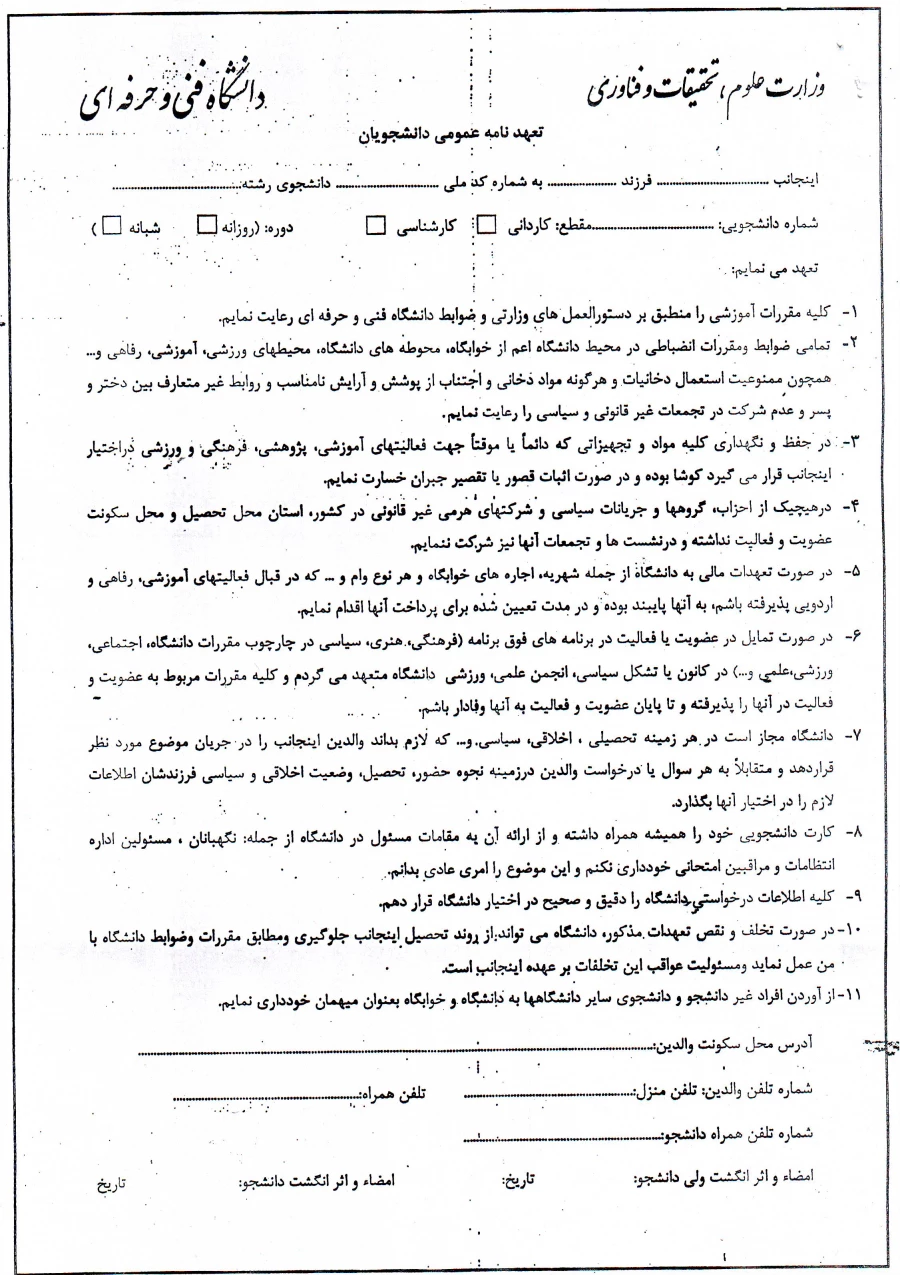 وزارت علوم، تحقیقات و فناوری
دانشگاه فنی و حرفه ای
تعهد نامه عمومی دانشجویان
اینجانب ........................ فرزند ................ به شماره کد ملی ........................ دانشجوی رشته:........................
شماره دانشجویی: ........................مقطع: کاردانی □ کارشناسی □ دوره: (روزانه □ شبانه □ )
تعهد می نمایم:
۱- کلیه مقررات آموزشی را منطبق بر دستورالعمل های وزارتی و ضوابط دانشگاه فنی و حرفه ای رعایت نمایم.
۲- تمامی ضوابط ومقررات انضباطی در محیط دانشگاه اعم از خوابگاه، محوطه های دانشگاه، محیطهای ورزشی، آموزشی، رفاهی و...
همچون ممنوعیت استعمال دخانیات و هرگونه مواد دخانی و اجتناب از پوشش و آرایش نامناسب و روابط غیر متعارف بین دختر و
پسر و عدم شرکت در تجمعات غیر قانونی و سیاسی را رعایت نمایم.
۳- در حفظ و نگهداری کلیه مواد و تجهیزاتی که دائماً یا موقتاً جهت فعالیتهای آموزشی، پژوهشی، فرهنگی و ورزشی دراختیار
اینجانب قرار می گیرد کوشا بوده و در صورت اثبات قصور یا تقصیر جبران خسارت نمایم.
۴- درهیچیک از احزاب، گروهها و جریانات سیاسی و شرکتهای هرمی غیر قانونی در کشور، استان محل تحصیل و محل سکونت
عضویت و فعالیت نداشته و درنشست ها و تجمعات آنها نیز شرکت ننمایم.
۵- در صورت تعهدات مالی به دانشگاه از جمله شهریه، اجاره های خوابگاه و هر نوع وام و ... که در قبال فعالیتهای آموزشی، رفاهی و
اردویی پذیرفته باشم، به آنها پایبند بوده و در مدت تعیین شده برای پرداخت آنها اقدام نمایم.
۶- در صورت تمایل در عضویت یا فعالیت در برنامه های فوق برنامه (فرهنگی، هنری، سیاسی در چارچوب مقررات دانشگاه، اجتماعی،
ورزشی،علمی و...) در کانون یا تشکل سیاسی، انجمن علمی، ورزشی دانشگاه متعهد می گردم و کلیه مقررات مربوط به عضویت و
فعالیت در آنها را پذیرفته و تا پایان عضویت و فعالیت به آنها وفادار باشم.
۷- دانشگاه مجاز است در هر زمینه تحصیلی ، اخلاقی، سیاسی و... که لازم بداند والدین اینجانب را در جریان موضوع مورد نظر
قراردهد و متقابلاً به هر سوال یا درخواست والدین درزمینه نجوه حضور، تحصیل، وضعیت اخلاقی و سیاسی فرزندشان اطلاعات
لازم را در اختیار آنها بگذارد.
۸- کارت دانشجویی خود را همیشه همراه داشته و از ارائه آن به مقامات مسئول در دانشگاه از جمله: نگهبانان ، مسئولین اداره
انتظامات و مراقبین امتحانی خودداری نکنم و این موضوع را امری عادی بدانم.
۹- کلیه اطلاعات درخواستی دانشگاه را دقیق و صحیح در اختیار دانشگاه قرار دهم.
۱۰-در صورت تخلف و نقص تعهدات مذکور، دانشگاه می تواند از روند تحصیل اینجانب جلوگیری ومطابق مقررات وضوابط دانشگاه با
من عمل نماید ومسئولیت عواقب این تخلفات بر عهده اینجانب است.
۱۱-از آوردن افراد غیر دانشجو و دانشجوی سایر دانشگاهها به دانشگاه و خوابگاه بعنوان میهمان خودداری نمایم.
آدرس محل سکونت والدین:........................................................................
شماره تلفن والدین: تلفن منزل:........................ تلفن همراه:........................
شماره تلفن همراه دانشجو:........................
امضاء و اثر انگشت ولی دانشجو: تاریخ: امضاء و اثر انگشت دانشجو: تاریخ